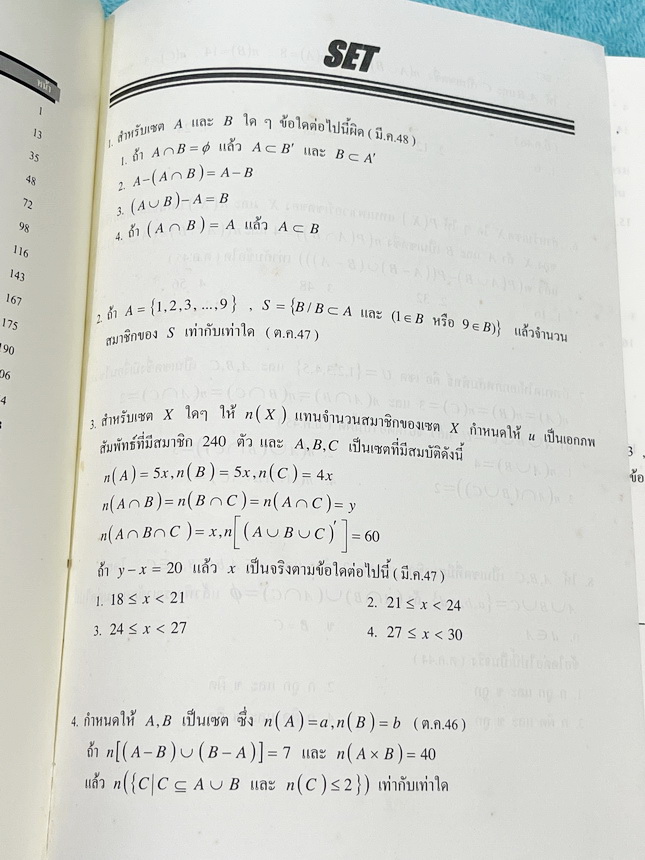 หน้า
1
13
35
48
72
98
116
143
167
175
190
06
4
SET
1. สำหรับเซต A และ B ใด ๆ ข้อใดต่อไปนี้ผิด ( มี.ค.48 )
1. ถ้า A∩B = ϕ แล้ว A ⊂ B′ และ B ⊂ A′
2. A−(A∩B) = A−B
3. (A∪B)−A = B
4. ถ้า (A∩B) = A แล้ว A ⊂ B
2. ถ้า A = {1,2,3, ...,9} , S = {B / B ⊂ A และ (1∈B หรือ 9∈B)} แล้วจำนวน
สมาชิกของ S เท่ากับเท่าใด ( ต.ค.47 )
3. สำหรับเซต X ใดๆ ให้ n(X) แทนจำนวนสมาชิกของเซต X กำหนดให้ u เป็นเอกภพ
สัมพัทธ์ที่มีสมาชิก 240 ตัว และ A,B,C เป็นเซตที่มีสมบัติดังนี้
n(A) = 5x, n(B) = 5x, n(C) = 4x
n(A∩B) = n(B∩C) = n(A∩C) = y
n(A∩B∩C) = x, n[(A∪B∪C)′] = 60
ถ้า y−x = 20 แล้ว x เป็นจริงตามข้อใดต่อไปนี้ ( มี.ค.47 )
1. 18 ≤ x < 21 2. 21 ≤ x < 24
3. 24 ≤ x < 27 4. 27 ≤ x < 30
4. กำหนดให้ A,B เป็นเซต ซึ่ง n(A) = a, n(B) = b ( ต.ค.46 )
ถ้า n[(A−B)∪(B−A)] = 7 และ n(A×B) = 40
แล้ว n({C|C ⊆ A∪B และ n(C) ≤ 2}) เท่ากับเท่าใด
3 ,
ข้อ